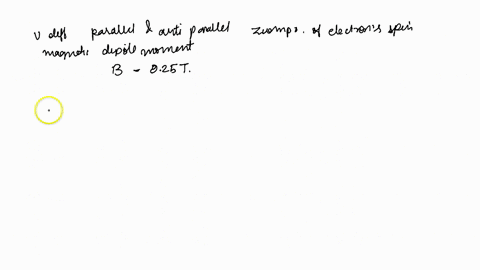 U diff parallel & anti parallel z comp. of electron's spin
magnetic dipole moment
B - 0.25T.